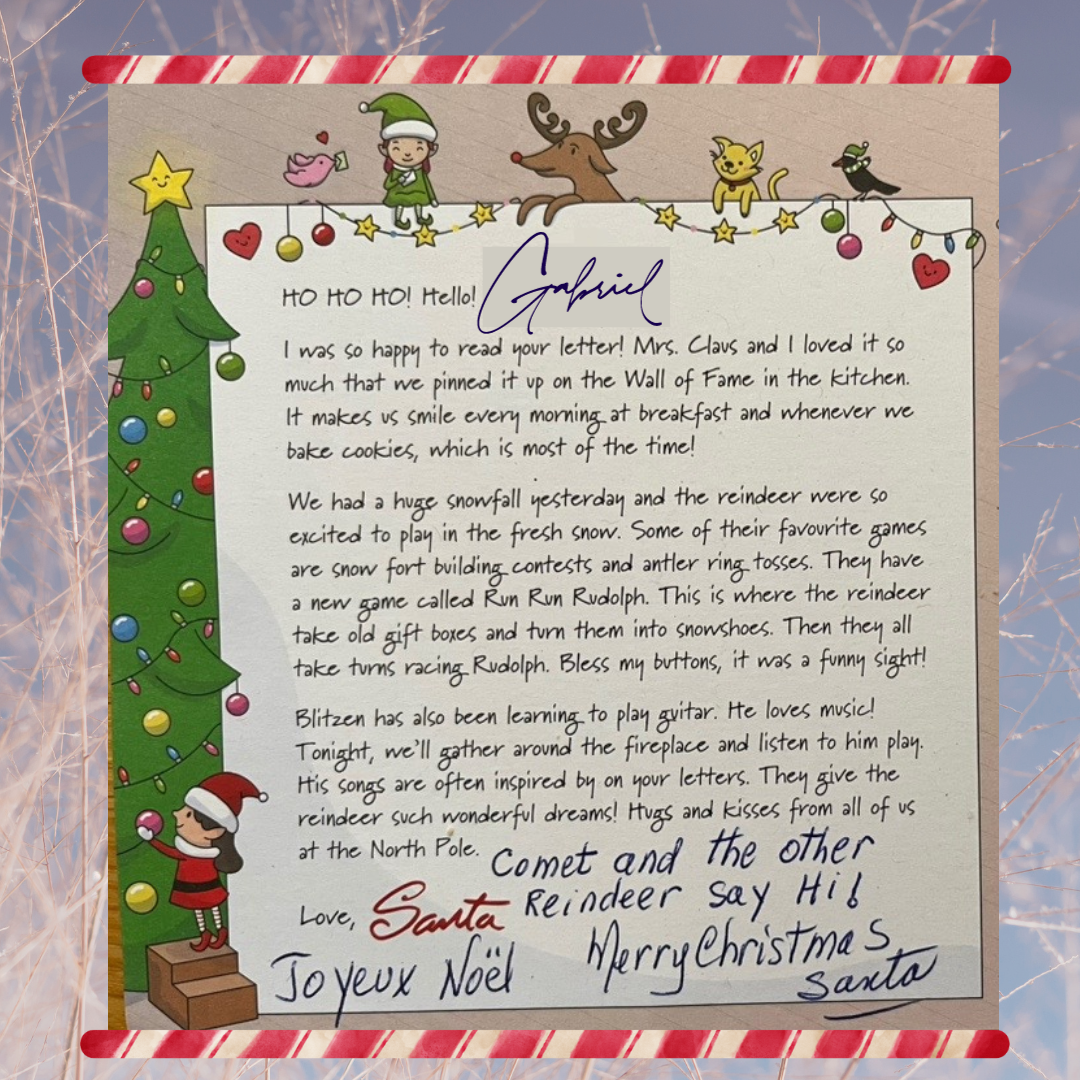 HO HO HO! Hello! Gabriel
I was so happy to read your letter! Mrs. Claus and I loved it so
much that we pinned it up on the Wall of Fame in the kitchen.
It makes us smile every morning at breakfast and whenever we
bake cookies, which is most of the time!
We had a huge snowfall yesterday and the reindeer were so
excited to play in the fresh snow. Some of their favourite games
are snow fort building contests and antler ring tosses. They have
a new game called Run Run Rudolph. This is where the reindeer
take old gift boxes and turn them into snowshoes. Then they all
take turns racing Rudolph. Bless my buttons, it was a funny sight!
Blitzen has also been learning to play guitar. He loves music!
Tonight, we'll gather around the fireplace and listen to him play.
His songs are often inspired by on your letters. They give the
reindeer such wonderful dreams! Hugs and kisses from all of us
at the North Pole. Comet and the other
Love, Santa Reindeer say Hi!
Joyeux Noël Merry Christmas
Santa